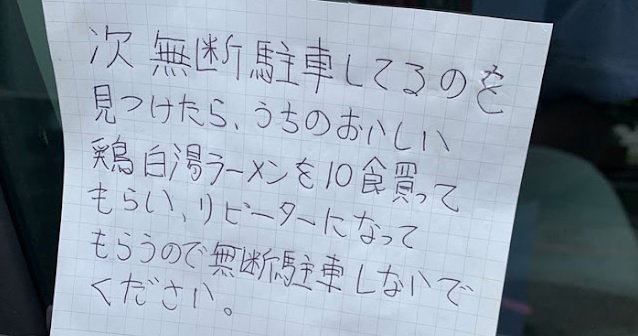 次無断駐車してるのを
見つけたら、うちのおいしい
鶏白湯ラーメンを10食買って
もらい、リピーターになって
もらうので無断駐車しないで
ください。